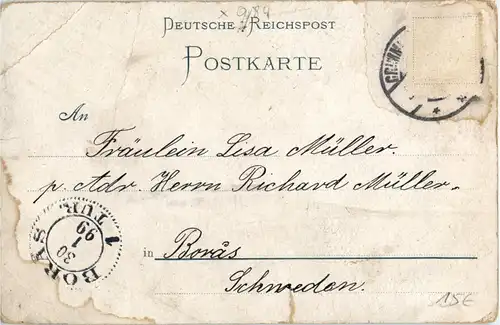 x 9/84
DEUTSCHE REICHSPOST
POSTKARTE
An
Fräulein Lisa Müller.
p. Adr. Herrn Richard Müller.
in Borås
Schweden.
BORÅS
1 TUR
30
1
99
15€